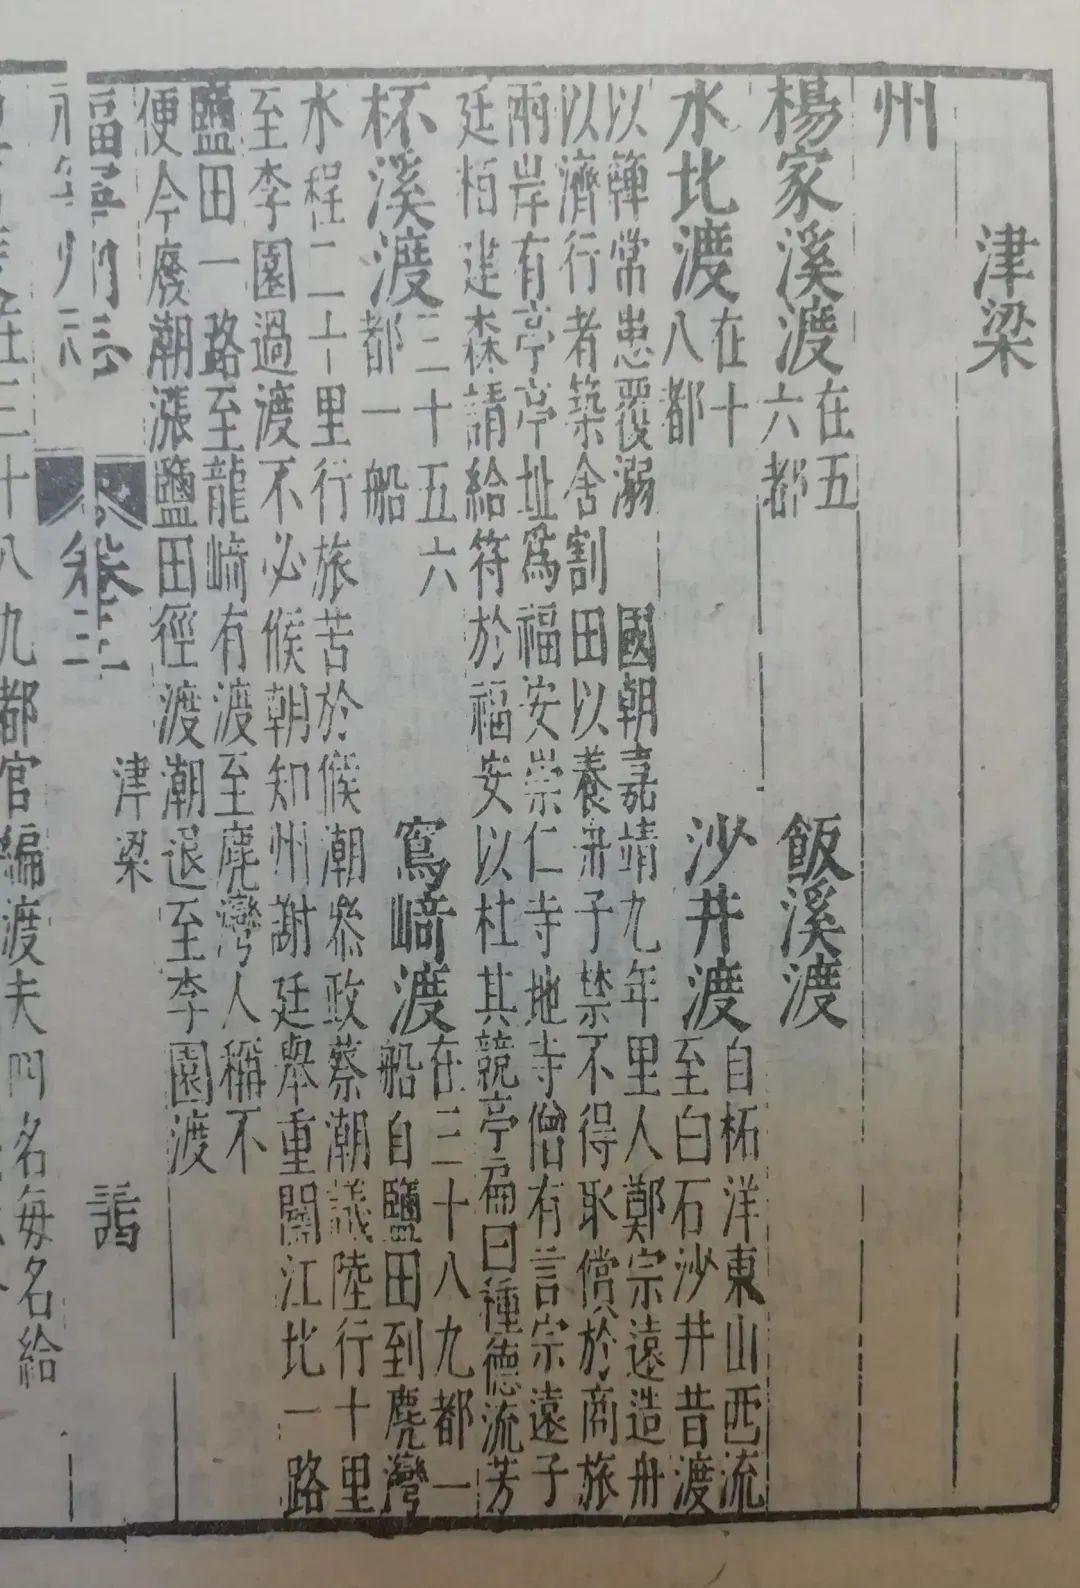 津梁
州
楊家溪渡在五六都
飯溪渡
水北渡在十八都
沙井渡自柘洋東山西流至白石沙井昔渡
以籜常患覆溺 國朝嘉靖九年里人鄭宗遠造舟
以濟行者築舍割田以養舟子禁不得取償於商旅
兩岸有亭亭址爲福安崇仁寺地寺僧有言宗遠子
廷栢建森請給符於福安以杜其競亭扁曰種德流芳
杯溪渡三十五六都一船
窵崎渡在三十八九都一船自鹽田到麂灣
水程二十里行旅苦於候潮叅政蔡潮議陸行十里
至李園過渡不必候朝知州謝廷舉重闢江北一路
鹽田一路至龍崎有渡至麂灣人稱不
便今廢潮漲鹽田徑渡潮退至李園渡
福寧州志
卷三
津梁
在三十八九都官編渡夫四名每名給